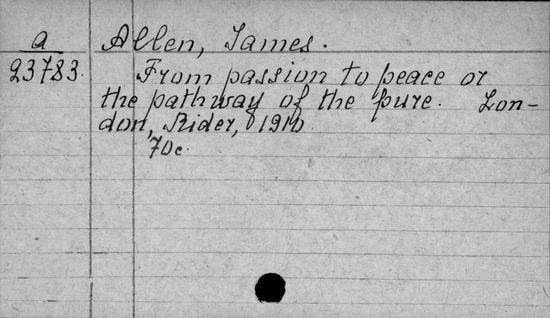 a Allen, James.
23783. From passion to peace or
the pathway of the pure. Lon-
don, Rider, 1910
70c.